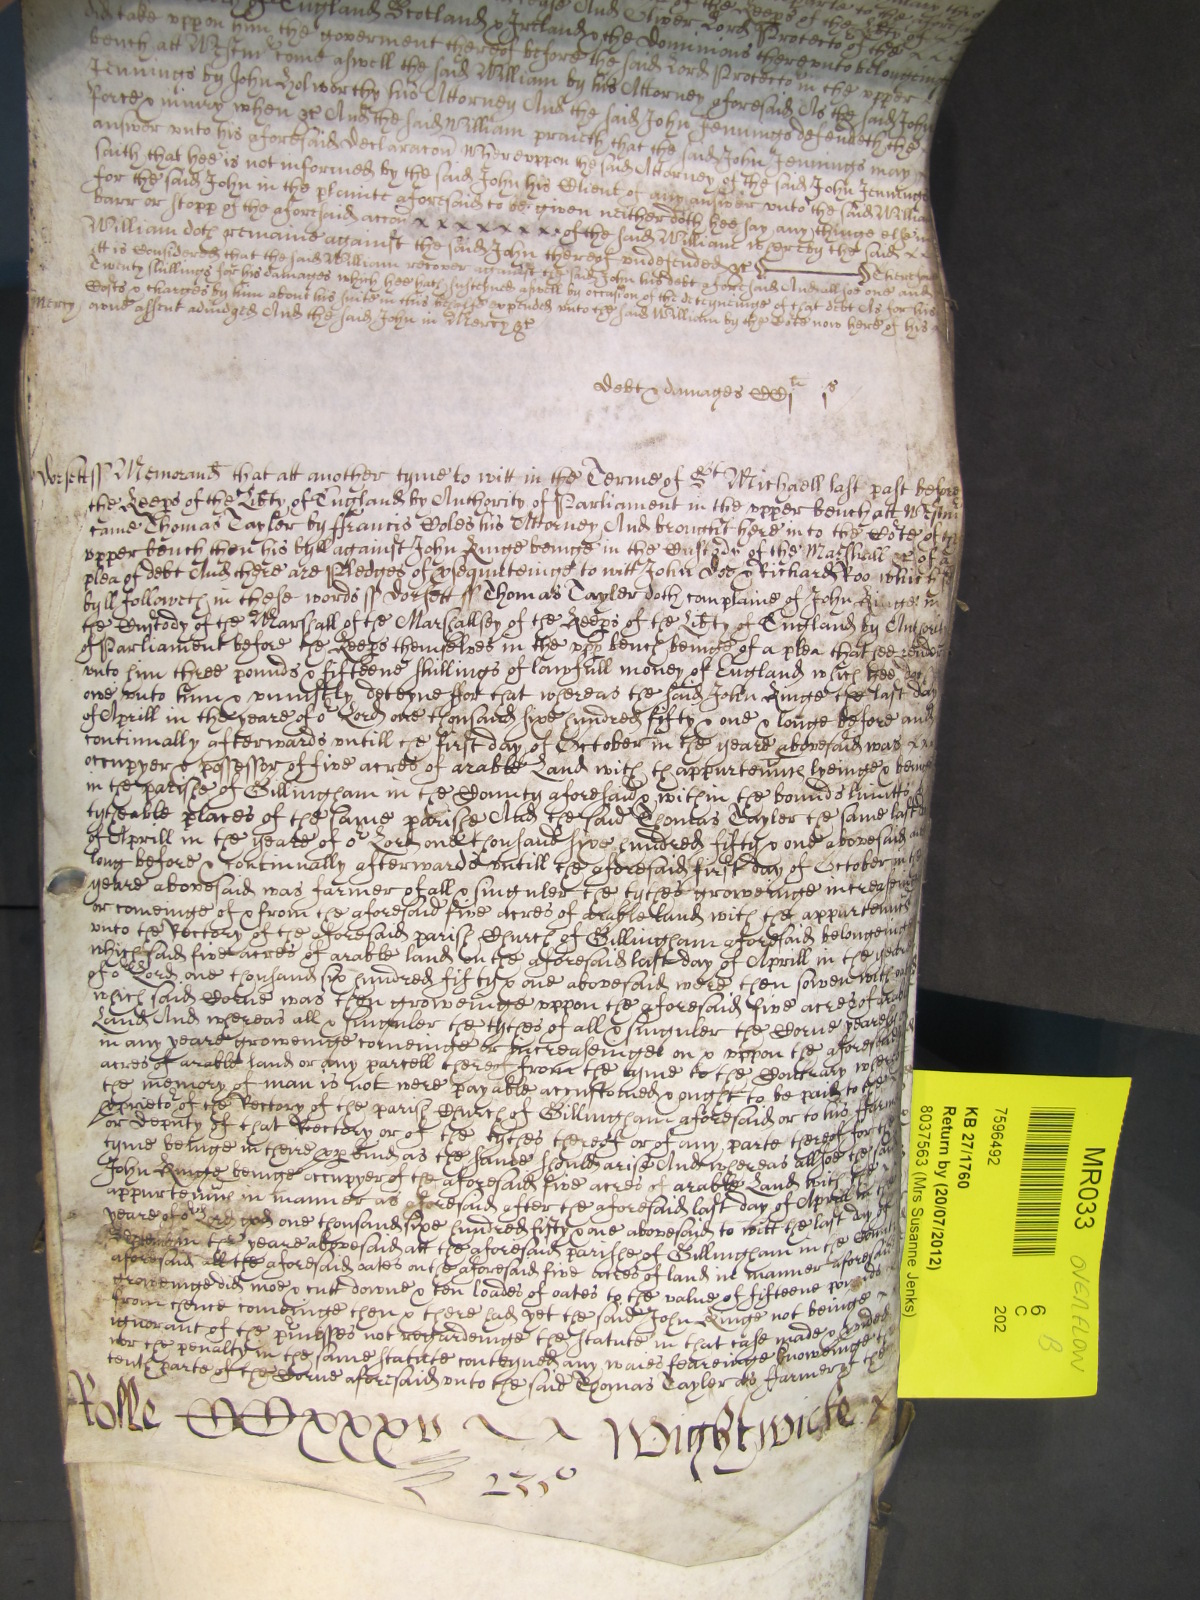 of England Scotland & Ireland & the Dominions thereunto belongeinge
did take uppon him the goverment thereof before the said Lord Protector in the upper
bench att Westm come aswell the said William by his Attorney aforesaid As the said John
Jennings by John Holworthy his Attorney And the said John Jennings defendeth the
force & iniury when &c And the said William prayeth that the said John Jennings may
answer unto his aforesaid declaracon Whereuppon the said Attorney of the said John Jennings
saith that hee is not informed by the said John his Client of any answer unto the said William
for the said John in the plainte aforesaid to be given neither doth hee say any thinge else in
barr or stopp of the aforesaid accon x x x x x x x x of the said William whereby the said
William doth remaine against the said John thereof undefended &c Therefore
itt is Considered that the said William recover against the said John his debt aforesaid And alsoe one and
Twenty shillings for his damages which hee hath susteyned aswell by occasion of the deteyneinge of that debt As for his
Costs & charges by him about his suite in this behalfe expended unto the said William by the Cote now here of his
Mercy owne assent adiudged And the said John in Mercy &c
Debt & damages CCi li i s
Dorsett ss Memorand that att another tyme to witt in the Terme of St Michaell last past before
the Keeps of the Libty of England by Authority of Parliament in the upper bench att Westm
came Thomas Tayler by Francis Coles his Attorney And brought here into the Cote of the
upper bench then his byll against John Ringe beinge in the Custody of the Marshall &c of a
plea of debt And there are Pledges of psequuteinge to witt John Doo & Richard Roo which
byll followeth in these words ss Dorsett ss Thomas Tayler doth complaine of John Ringe in
the Custody of the Marshall of the Marshallsey of the Keeps of the Libty of England by Authority
of Parliament before the Keeps themselves in the upp bench beinge of a plea that hee render
unto him three pounds & fifteene shillings of lawfull money of England which hee doth
owe unto him & uniustly deteyne For that whereas the said John Ringe the last day
of Aprill in the yeare of or Lord one thousand sixe hundred fifty & one & longe before and
continually afterwards untill the first day of October in the yeare abovesaid was x x x
occupyer & possessor of five acres of arable Land with thappurtennces lyeinge & beinge
in the parishe of Gillingham in the County aforesaid & within the bounds limitts &
tytheable places of the same parishe And the said Thomas Tayler the same last day
of Aprill in the yeare of or Lord one thousand sixe hundred fifty & one abovesaid and
long before & continually afterwards untill the aforesaid first day of October in the
yeare abovesaid was farmer of all & singuler the tythes groweinge increaseinge
or comeinge of & from the aforesaid five acres of arable land with the appurtennces
unto the Rectory of the aforesaid parish Church of Gillingham aforesaid belongeinge
which said five acres of arable land on the aforesaid last day of Aprill in the yeare
of or Lord one thousand six hundred fifty & one abovesaid were then sowen with
which said Corne was then groweinge uppon the aforesaid five acres of arable
Land And whereas all & singuler the tythes of all & singuler the Corne yearely
in any yeare groweinge comeinge or increaseinge on & uppon the aforesaid
acres of arable land or any parcell thereof from the tyme to the Contrary whereof
the memory of man is not were payable accustomed & ought to be paid to the
pprietor of the Rectory of the parish Church of Gillingham aforesaid or to his Farmer
or Deputy of that Rectory or of the tythes thereof or of any parte thereof for the
tyme beinge in there pp kind as the same should arise And whereas alsoe the said
John Ringe beinge occupyer of the aforesaid five acres of arable Land with the
appurtennces in manner as aforesaid after the aforesaid last day of Aprill in the
yeare of or Lord god one thousand sixe hundred fifty one abovesaid to witt the last day of
in the yeare abovesaid att the aforesaid parishe of Gillingham in the County
aforesaid all the aforesaid oates on the aforesaid five acres of land in manner aforesaid
groweinge did moe & cutt downe & ten loades of oates to the value of fifteene pounds
from thence comeinge then & there had yet the said John Ringe not beinge
ignorant of the pmisses not regardeinge the statute in that case made & pvided
nor the penalty in the same statute conteyned any waies feareinge knoweinge the
tenth parte of the Corne aforesaid unto the said Thomas Tayler as farmer of the
Rolle CCxxxv Wightwicke
235
MR033
OVERFLOW
B
6
C
202
7596492
KB 27/1760
Return by (20/07/2012)
8037563 (Mrs Susanne Jenks)